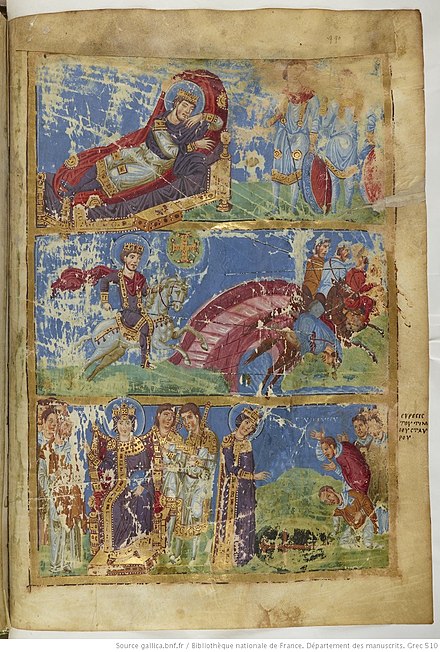 440
ΕΥΡΕСΙС
ΤΟΥ ΤΙΜ
ΙΟΥ СΤΑΥ
ΡΟΥ
Source gallica.bnf.fr / Bibliothèque nationale de France. Département des manuscrits. Grec 510